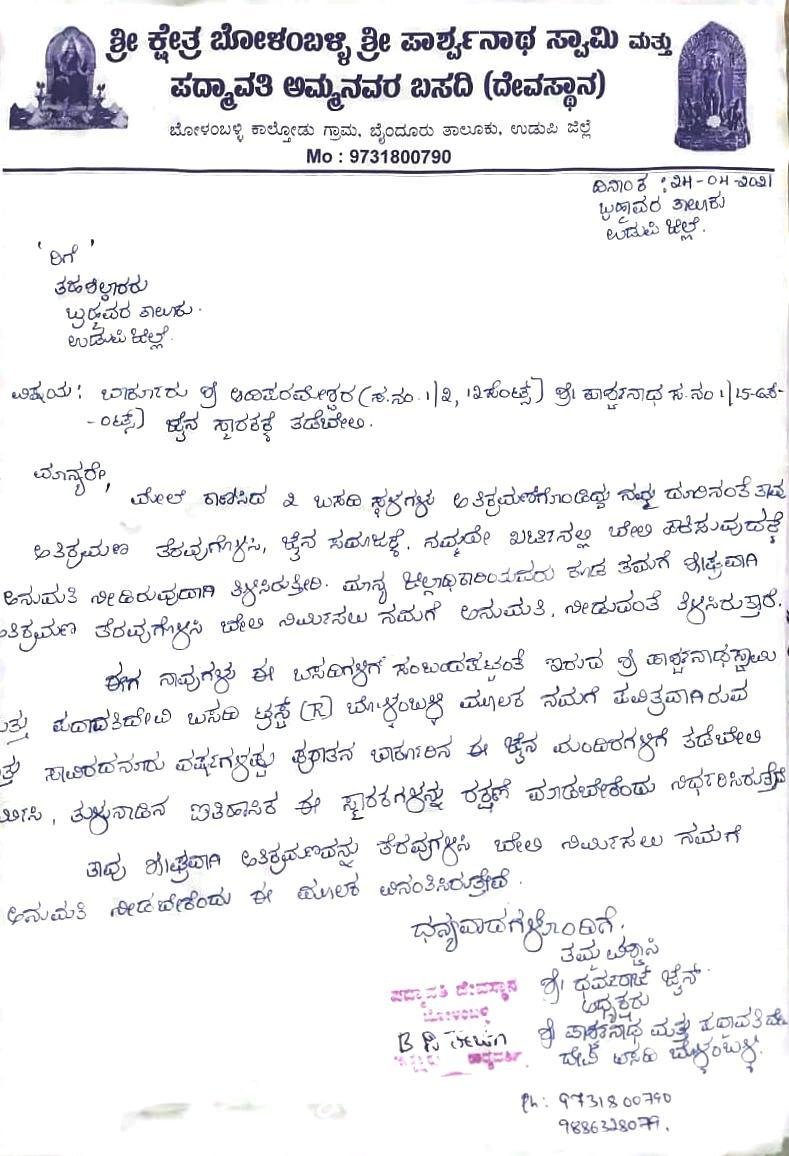 ಶ್ರೀ ಕ್ಷೇತ್ರ ಬೋಳಂಬಳ್ಳಿ ಶ್ರೀ ಪಾರ್ಶ್ವನಾಥ ಸ್ವಾಮಿ ಮತ್ತು
ಪದ್ಮಾವತಿ ಅಮ್ಮನವರ ಬಸದಿ (ದೇವಸ್ಥಾನ)
ಬೋಳಂಬಳ್ಳಿ ಕಾಲ್ತೋಡು ಗ್ರಾಮ, ಬೈಂದೂರು ತಾಲೂಕು, ಉಡುಪಿ ಜಿಲ್ಲೆ
Mo : 9731800790
ದಿನಾಂಕ : 24-04-2021
ಬ್ರಹ್ಮಾವರ ತಾಲೂಕು
ಉಡುಪಿ ಜಿಲ್ಲೆ.
'ರಿಗೆ'
ತಹಶಿಲ್ದಾರರು
ಬ್ರಹ್ಮವರ ತಾಲುಕು.
ಉಡುಪಿ ಜಿಲ್ಲೆ.
ವಿಷಯ: ಬಾರ್ಕೂರು ಶ್ರೀ ಆದಿಪರಮೇಶ್ವರ (ಸ.ನಂ. 1/2, 12ಸೆಂಟ್ಸ್) ಶ್ರೀ ಪಾರ್ಶ್ವನಾಥ ಸ.ನಂ
ಜೈನ ಸ್ಮಾರಕಕ್ಕೆ ತಡೆಬೇಲಿ.
ಮಾನ್ಯರೇ,
ಮೇಲೆ ಕಾಣಿಸಿದ 2 ಬಸದಿ ಸ್ಥಳಗಳು ಅತಿಕ್ರಮಣಗೊಂಡಿದ್ದು ನಮ್ಮ ದೂರಿನಂತೆ ತಾವು
ಅತಿಕ್ರಮಣ ತೆರವುಗೊಳಿಸಿ, ಜೈನ ಸಮಾಜಕ್ಕೆ, ನಮ್ಮದೇ ಖರ್ಚಿನಲ್ಲಿ ಬೇಲಿ ಹಾಕಿಸುವುದಕ್ಕೆ
ಅನುಮತಿ ನೀಡಿರುವುದಾಗಿ ತಿಳಿಸಿರುತ್ತೀರಿ. ಮಾನ್ಯ ಜಿಲ್ಲಾಧಿಕಾರಿಯವರು ಕೂಡ ತಮಗೆ ಶೀಘ್ರವಾಗಿ
ಅತಿಕ್ರಮಣ ತೆರವುಗೊಳಿಸಿ ಬೇಲಿ ನಿರ್ಮಿಸಲು ನಮಗೆ ಅನುಮತಿ. ನೀಡುವಂತೆ ತಿಳಿಸಿರುತ್ತಾರೆ.
ಈಗ ನಾವುಗಳು ಈ ಬಸದಿಗಳಿಗೆ ಸಂಬಂಧಪಟ್ಟಂತೆ ಇರುವ ಶ್ರೀ ಪಾರ್ಶ್ವನಾಥಸ್ವಾಮಿ
ಮತ್ತು ಪದ್ಮಾವತಿದೇವಿ ಬಸದಿ ಟ್ರಸ್ಟ್ (R) ಬೋಳಂಬಳ್ಳಿ ಮೂಲಕ ನಮಗೆ ಪವಿತ್ರವಾಗಿರುವ
ಮತ್ತು ಸಾವಿರದನೂರು ವರ್ಷಗಳಷ್ಟು ಪುರಾತನ ಬಾರ್ಕೂರಿನ ಈ ಜೈನ ಮಂದಿರಗಳಿಗೆ ತಡೆಬೇಲಿ
ತುಳುನಾಡಿನ ಐತಿಹಾಸಿಕ ಈ ಸ್ಮಾರಕಗಳನ್ನು ರಕ್ಷಣೆ ಮಾಡಬೇಕೆಂದು ನಿರ್ಧರಿಸಿರುತ್ತೇವೆ
ತಾವು ಶೀಘ್ರವಾಗಿ ಅತಿಕ್ರಮಣವನ್ನು ತೆರವುಗಳಿಸಿ ಬೇಲಿ ನಿರ್ಮಿಸಲು ನಮಗೆ
ಅನುಮತಿ ನೀಡಬೇಕೆಂದು ಈ ಮೂಲಕ ವಿನಂತಿಸಿರುತ್ತೇವೆ.
ಧನ್ಯವಾದಗಳೊಂದಿಗೆ.
ತಮ್ಮ ವಿಶ್ವಾಸಿ
ಶ್ರೀ ಧರ್ಮರಾಜ ಜೈನ್.
ಅಧ್ಯಕ್ಷರು
ಪದ್ಮಾವತಿ ದೇವಸ್ಥಾನ
ಬೋಳಂಬಳ್ಳಿ
ಶ್ರೀ ಪಾರ್ಶ್ವನಾಥ ಮತ್ತು ಪದ್ಮಾವತಿ ದೇ.
ಬಸದಿ ಬೋಳಂಬಳ್ಳಿ.
Ph: 9731800790
9886328079.